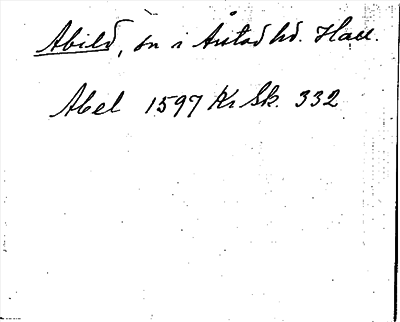 Abild, sn i Årstad hd. Hall.
Abel 1597 Kr Sk. 332